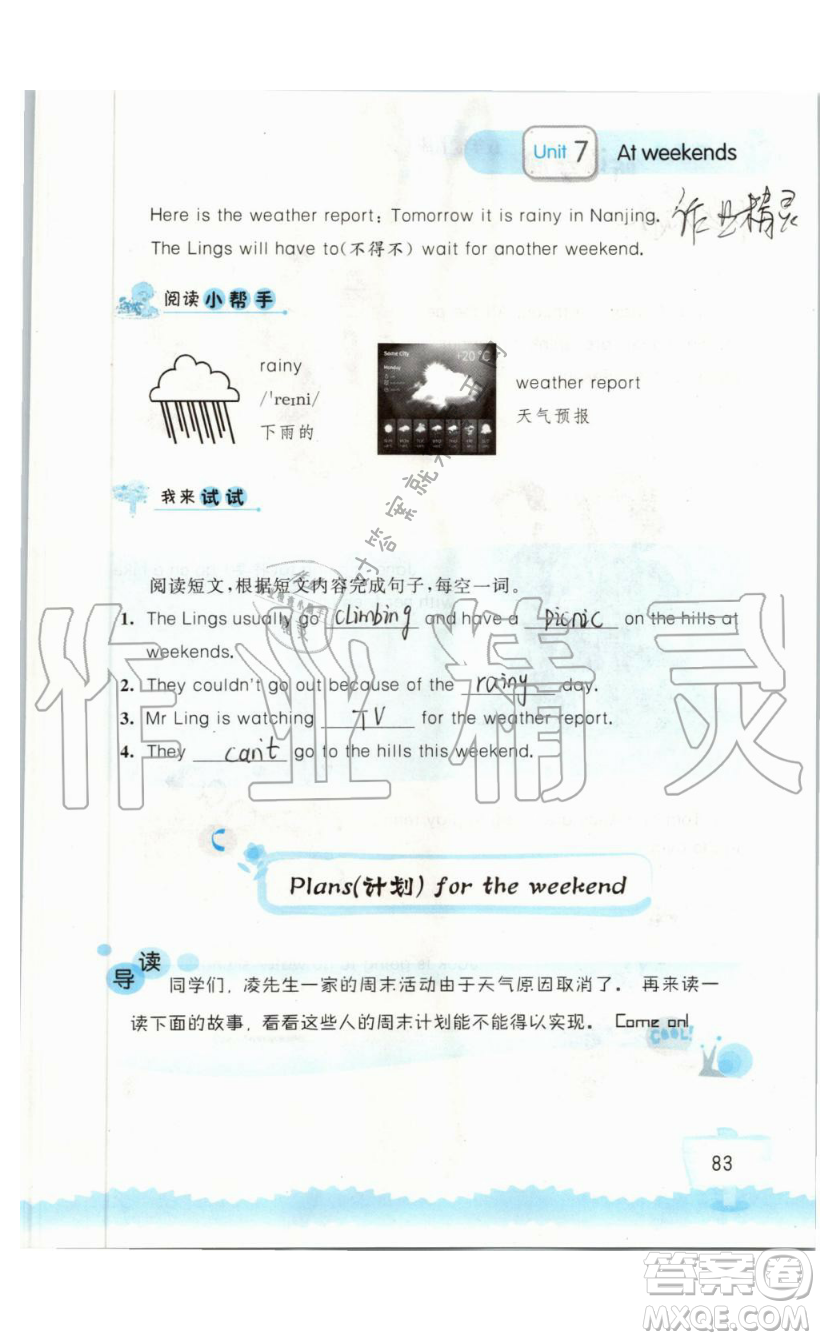 Unit 7 At weekends
Here is the weather report: Tomorrow it is rainy in Nanjing.
作业精灵
The Lings will have to(不得不) wait for another weekend.
阅读小帮手
rainy
/ˈreɪni/
下雨的
Some City
Monday
+20℃
weather report
天气预报
我来试试
阅读短文,根据短文内容完成句子,每空一词。
1. The Lings usually go climbing and have a picnic on the hills at
weekends.
2. They couldn't go out because of the rainy day.
3. Mr Ling is watching TV for the weather report.
4. They can't go to the hills this weekend.
作业精灵
C
Plans(计划) for the weekend
导读
同学们,凌先生一家的周末活动由于天气原因取消了。 再来读一
读下面的故事,看看这些人的周末计划能不能得以实现。 Come on!
COOL!
83
答案圈
MXQE.COM